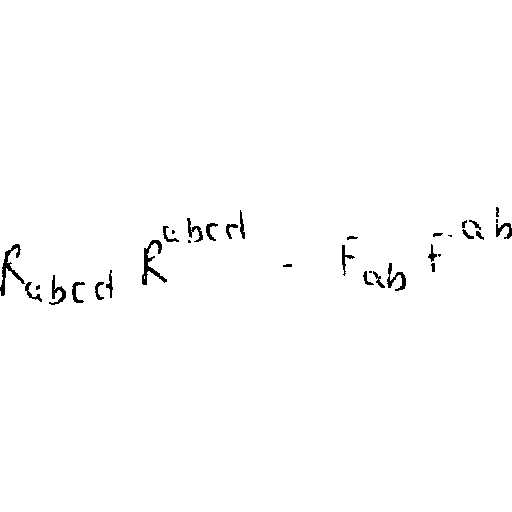 R_{abcd} R^{abcd} - F_{ab} F^{ab}